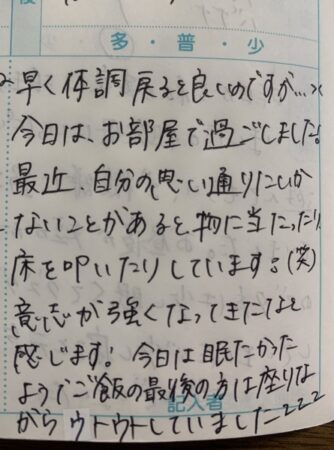 多・普・少
早く体調戻ると良いのですが…××
今日は、お部屋で過ごしました。
最近、自分の思い通りにいか
ないことがあると、物に当たったり
床を叩いたりしています。(笑)
意志が強くなってきたなと
感じます。今日は眠たかった
ようでご飯の最後の方は座りな
がらウトウトしていましたzzz
記入者